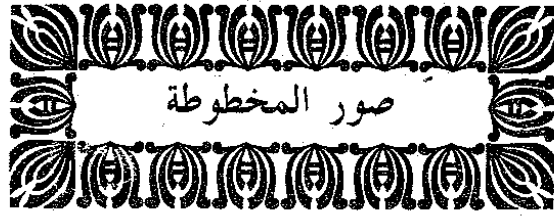 صور المخطوطة